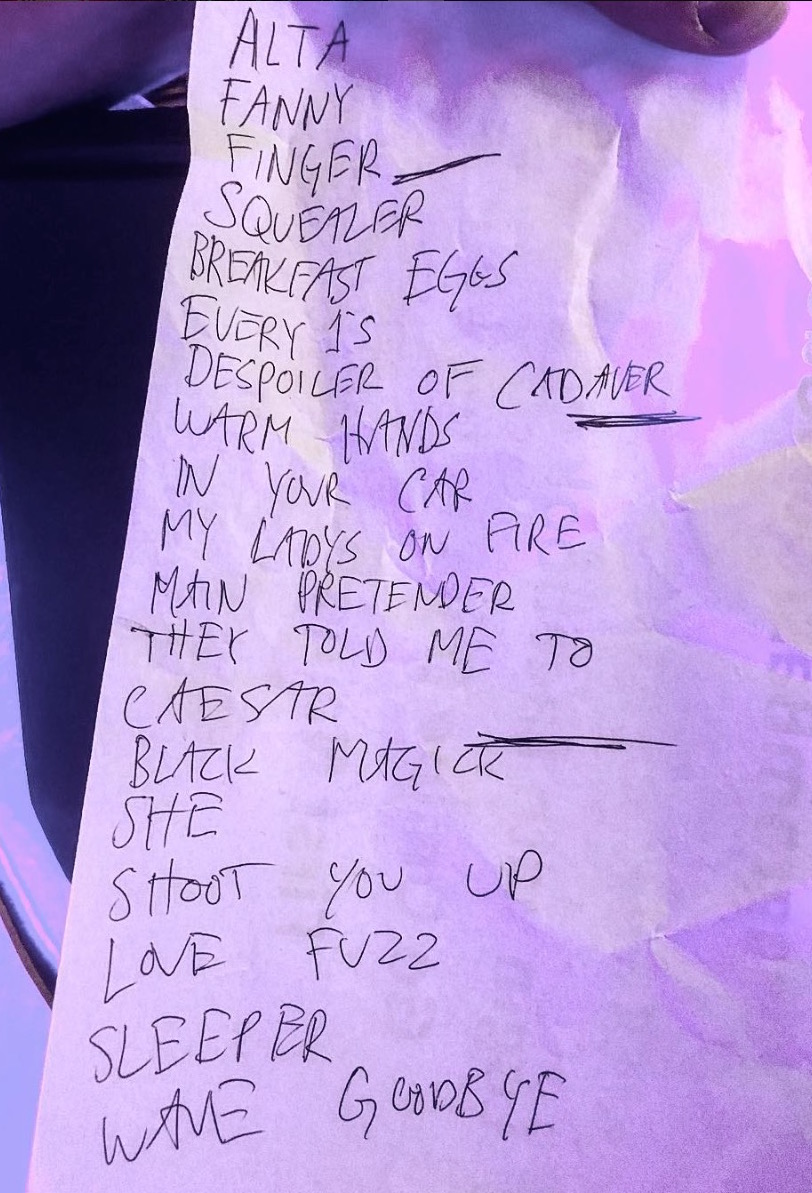 ALTA
FANNY
FINGER
SQUEALER
BREAKFAST EGGS
EVERY 1'S
DESPOILER OF CADAVER
WARM HANDS
IN YOUR CAR
MY LADYS ON FIRE
MAIN PRETENDER
THEY TOLD ME TO
CAESAR
BLACK MAGICK
SHE
SHOOT YOU UP
LOVE FUZZ
SLEEPER
WAVE GOODBYE